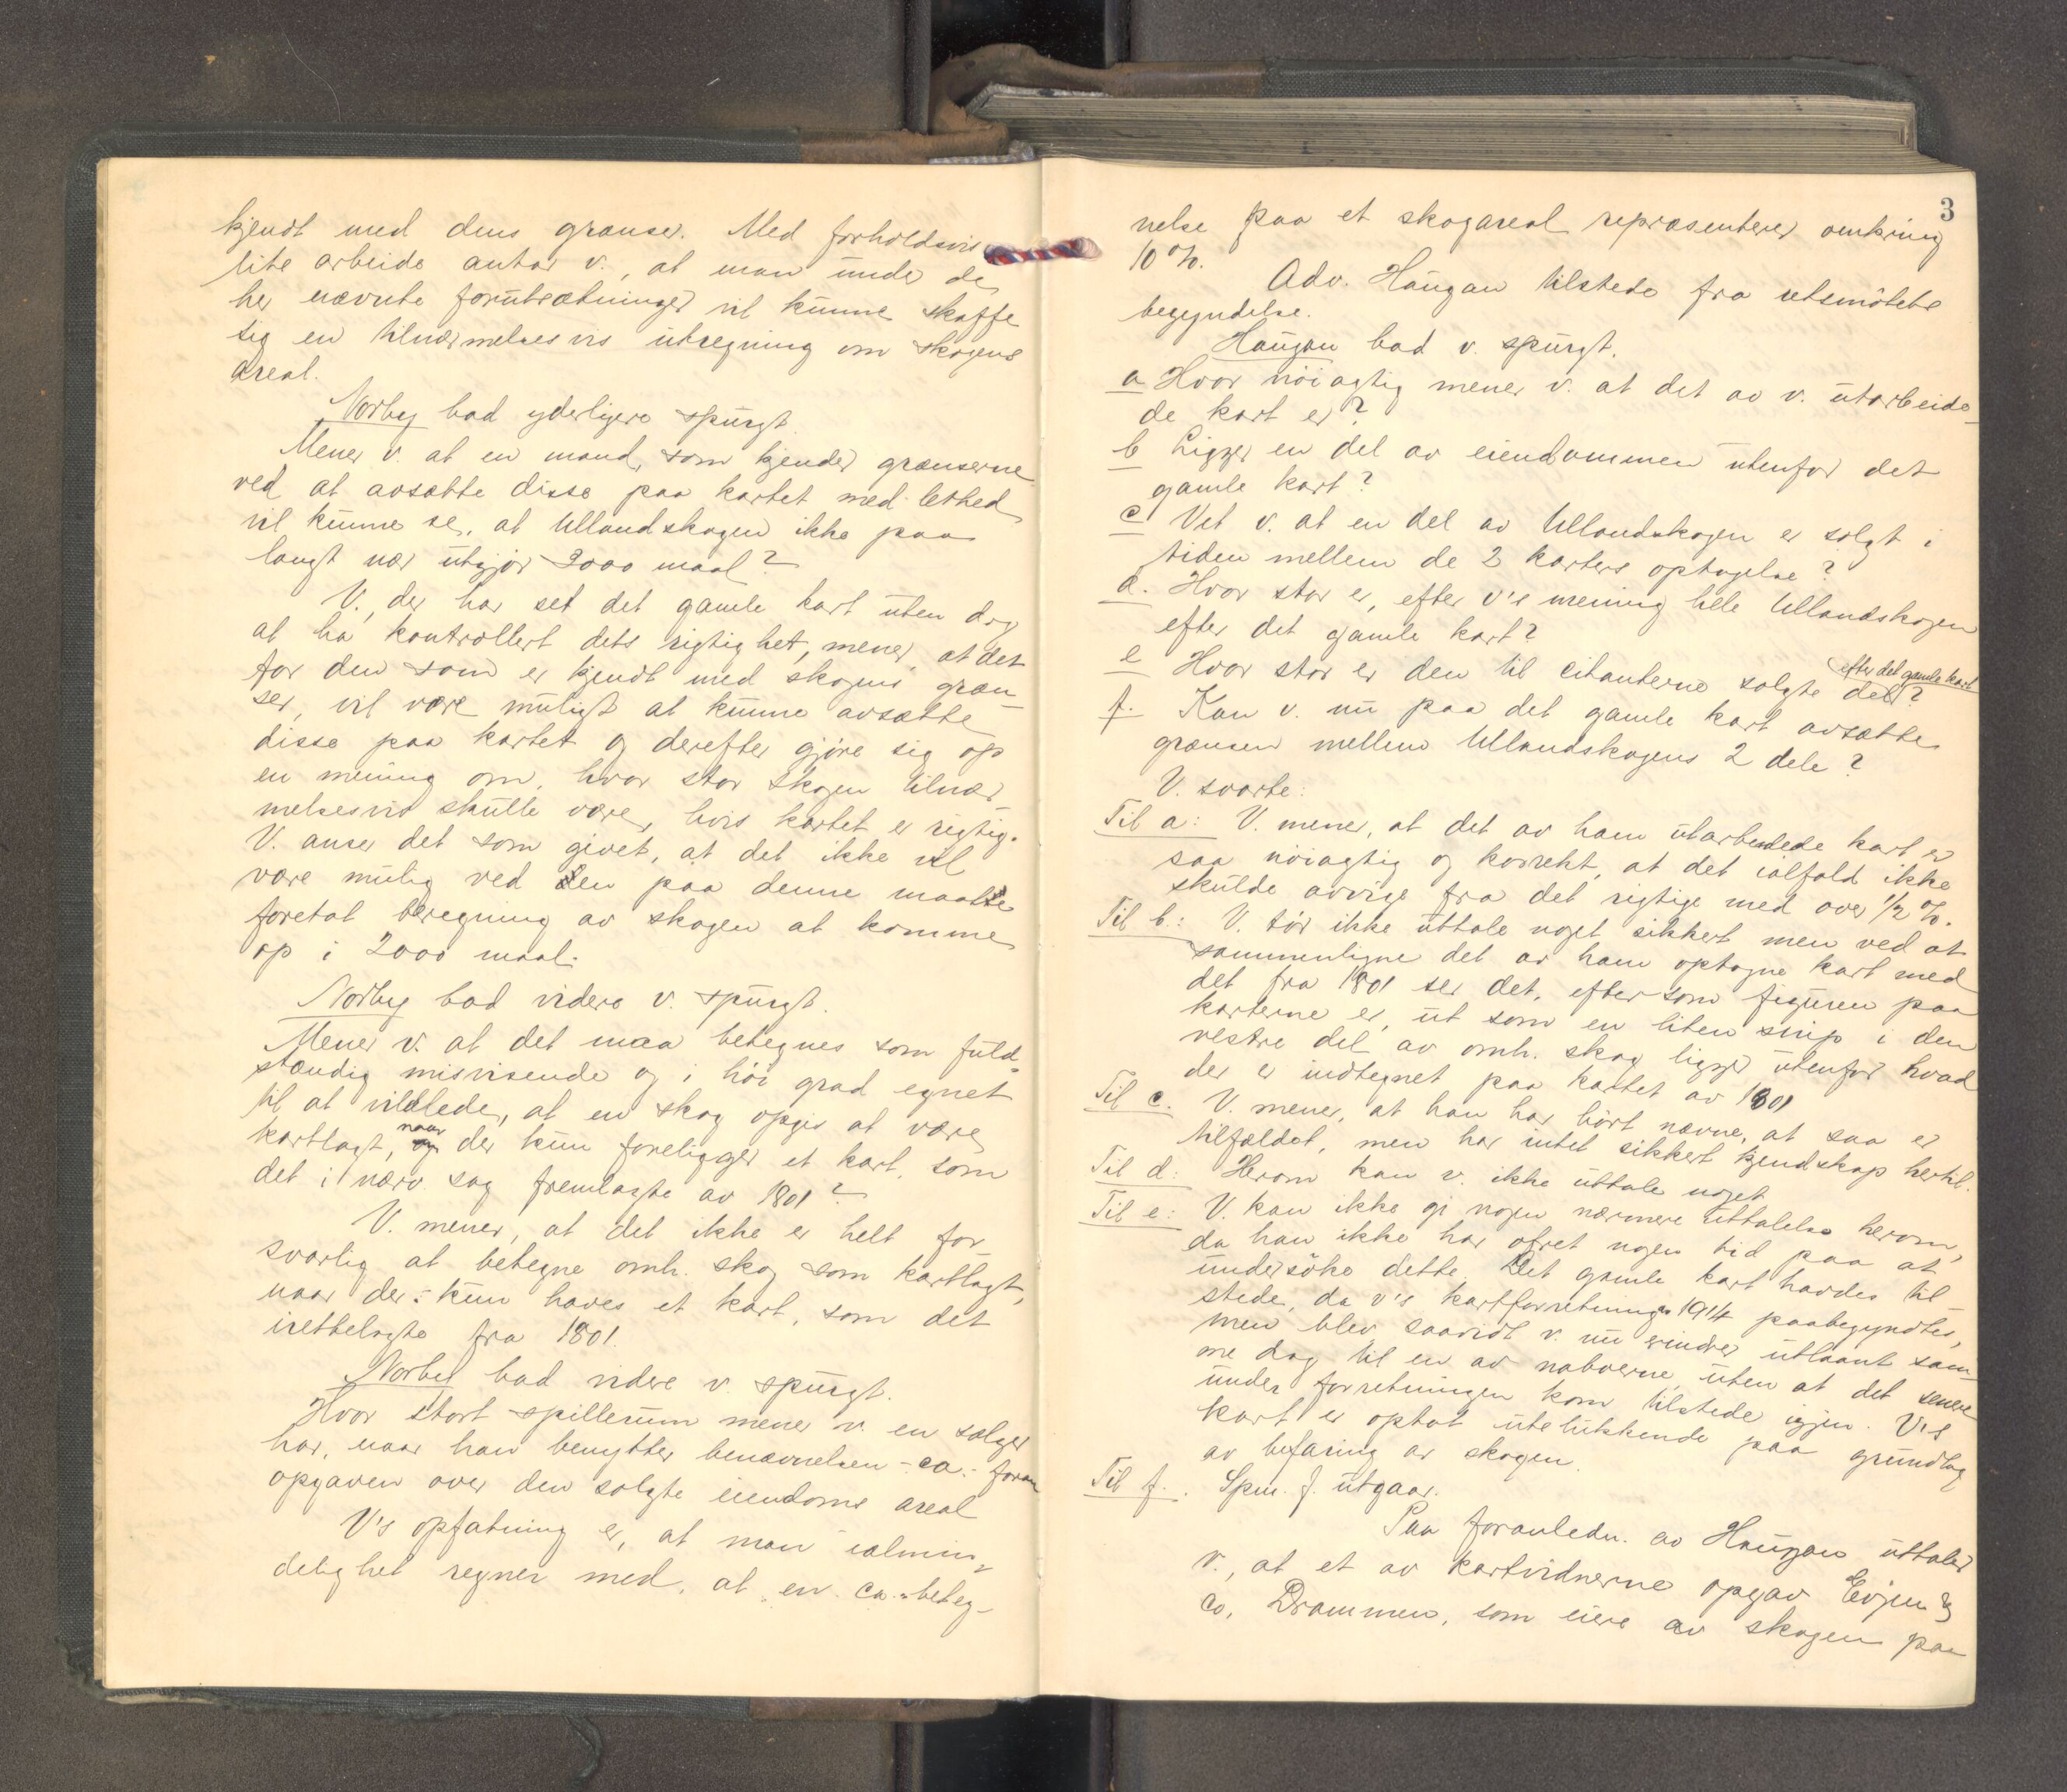 kjendt med dens grænser. Med forholdsvis
lite arbeide antar v., at man under de
her nævnte forutsætninger vil kunne skaffe
sig en tilnærmelsesvis utregning om skogens
areal.
Norby bad yderligere spurgt.
Mener v. at en mand, som kjender grænserne
ved at avsætte disse paa kartet med lethed
vil kunne se, at Ullandskogen ikke paa
langt nær utgjør 2000 maal?
V., der har set det gamle kart uten dog
at ha kontrollert dets rigtighet, mener, at det
for den som er kjendt med skogens græn-
ser, vil være muligt at kunne avsætte
disse paa kartet og derefter gjøre sig op
en mening om, hvor stor skogen tilnær-
melsesvis skulle være, hvis kartet er rigtig.
V. anser det som givet, at det ikke vil
være mulig ved den paa denne maate
foretat beregning av skogen at komme
op i 2000 maal.
Norby bad videre v. spurgt.
Mener v. at det maa betegnes som fuld-
stændig misvisende og i høi grad egnet
til at vildlede, at en skog opgis at være
kartlagt, naar der kun foreligger et kart, som
det i nærv. sag fremlagte av 1801?
V. mener, at det ikke er helt for-
svarlig at betegne omh. skog som kartlagt,
naar der kun haves et kart, som det
irettelagte fra 1801.
Norby bad videre v. spurgt.
Hvor stort spillerum mener v. en sælger
har, naar han benytter benævnelsen -ca.- foran
opgaven over den solgte eiendoms areal
V's opfatning er, at man i almin-
delighet regner med, at en "ca."-beteg-
3
nelse paa et skogareal repræsenterer omkring
10 %.
Adv. Haugan tilstede fra retsmøtets
begyndelse.
Haugan bad v. spurgt.
a Hvor nøiagtig mener v. at det av v. utarbeide-
de kart er?
b Ligger en del av eiendommen utenfor det
gamle kart?
c Vet v. at en del av Ullandskogen er solgt i
tiden mellem de 2 karters optagelse?
d. Hvor stor er, efter v's mening hele Ullandskogen
efter det gamle kart?
e Hvor stor er den til citanterne solgte del efter det gamle kart?
f. Kan v. nu paa det gamle kart avsætte
grænsen mellem Ullandskogens 2 dele?
V. svarte:
Til a: V. mener, at det av ham utarbeidede kart er
saa nøiagtig og korrekt, at det ialfald ikke
skulde avvige fra det rigtige med over 1/2 %.
Til b.: V. tør ikke uttale noget sikkert men ved at
sammenligne det av ham optagne kart med
det fra 1801 ser det, eftersom figuren paa
karterne er, ut som en liten snip i den
vestre del av omh. skog ligger utenfor hvad
der er indtegnet paa kartet av 1801
Til c. V. mener, at han har hørt nævne, at saa er
tilfældet, men har intet sikkert kjendskap hertil.
Til d: Herom kan v. ikke uttale noget
Til e: V. kan ikke gi nogen nærmere uttalelse herom,
da han ikke har ofret nogen tid paa at
undersøke dette. Det gamle kart havdes til-
stede, da v's kartforretning 1914 paabegyndtes,
men blev saavidt v. nu erindrer utlaant sam-
me dag til en av naboerne, uten at det senere
under forretningen kom tilstede igjen. V's
kart er optat utelukkende paa grundlag
av befaring av skogen.
Til f. Spm. f. utgaar.
Paa foranledn. av Haugan uttaler
v., at et av kartvidnerne opgav Evjen &
co, Drammen, som eiere av skogen paa